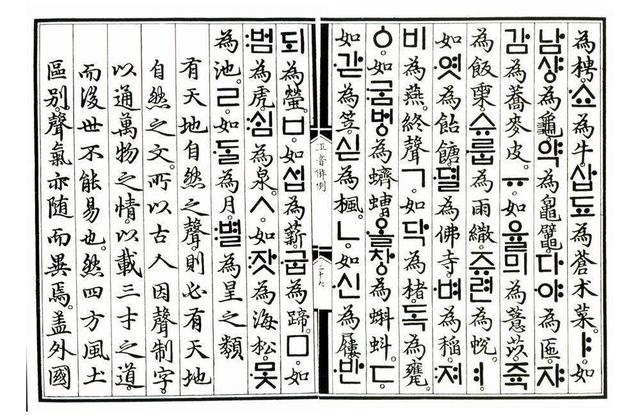 為梬。쇼為牛。삽됴為蒼朮菜。ㅑ如
남샹為龜。약為鼅鼊。다야為匜。쟈
감為蕎麥皮。ㅠ如율믜為薏苡。쥭
為飯𣖊。슈룹為雨繖。쥬련為帨。ㅕ
如엿為飴餹。뎔為佛寺。벼為稻。져
비為燕。終聲ㄱ如닥為楮。독為甕。
ㆁ如굼벙為蠐螬。올창為蝌蚪。ㄷ
如갇為笠。싣為楓。ㄴ如신為屨。반
正音解例 二十六
되為螢。ㅂ如섭為薪。굽為蹄。ㅁ如
범為虎。심為泉。ㅅ如잣為海松。못
為池。ㄹ如ᄃᆞᆯ為月。별為星之類
有天地自然之聲則必有天地
自然之文。所以古人因聲制字。
以通萬物之情。以載三才之道。
而後世不能易也。然四方風土
區別。聲氣亦隨而異焉。盖外國